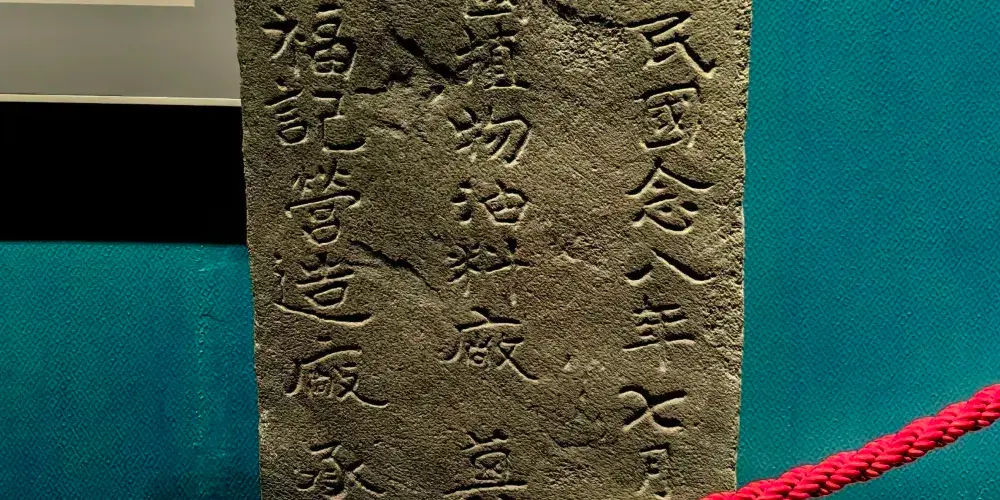 民國念八年七月
植物油料廠
福記營造廠 承